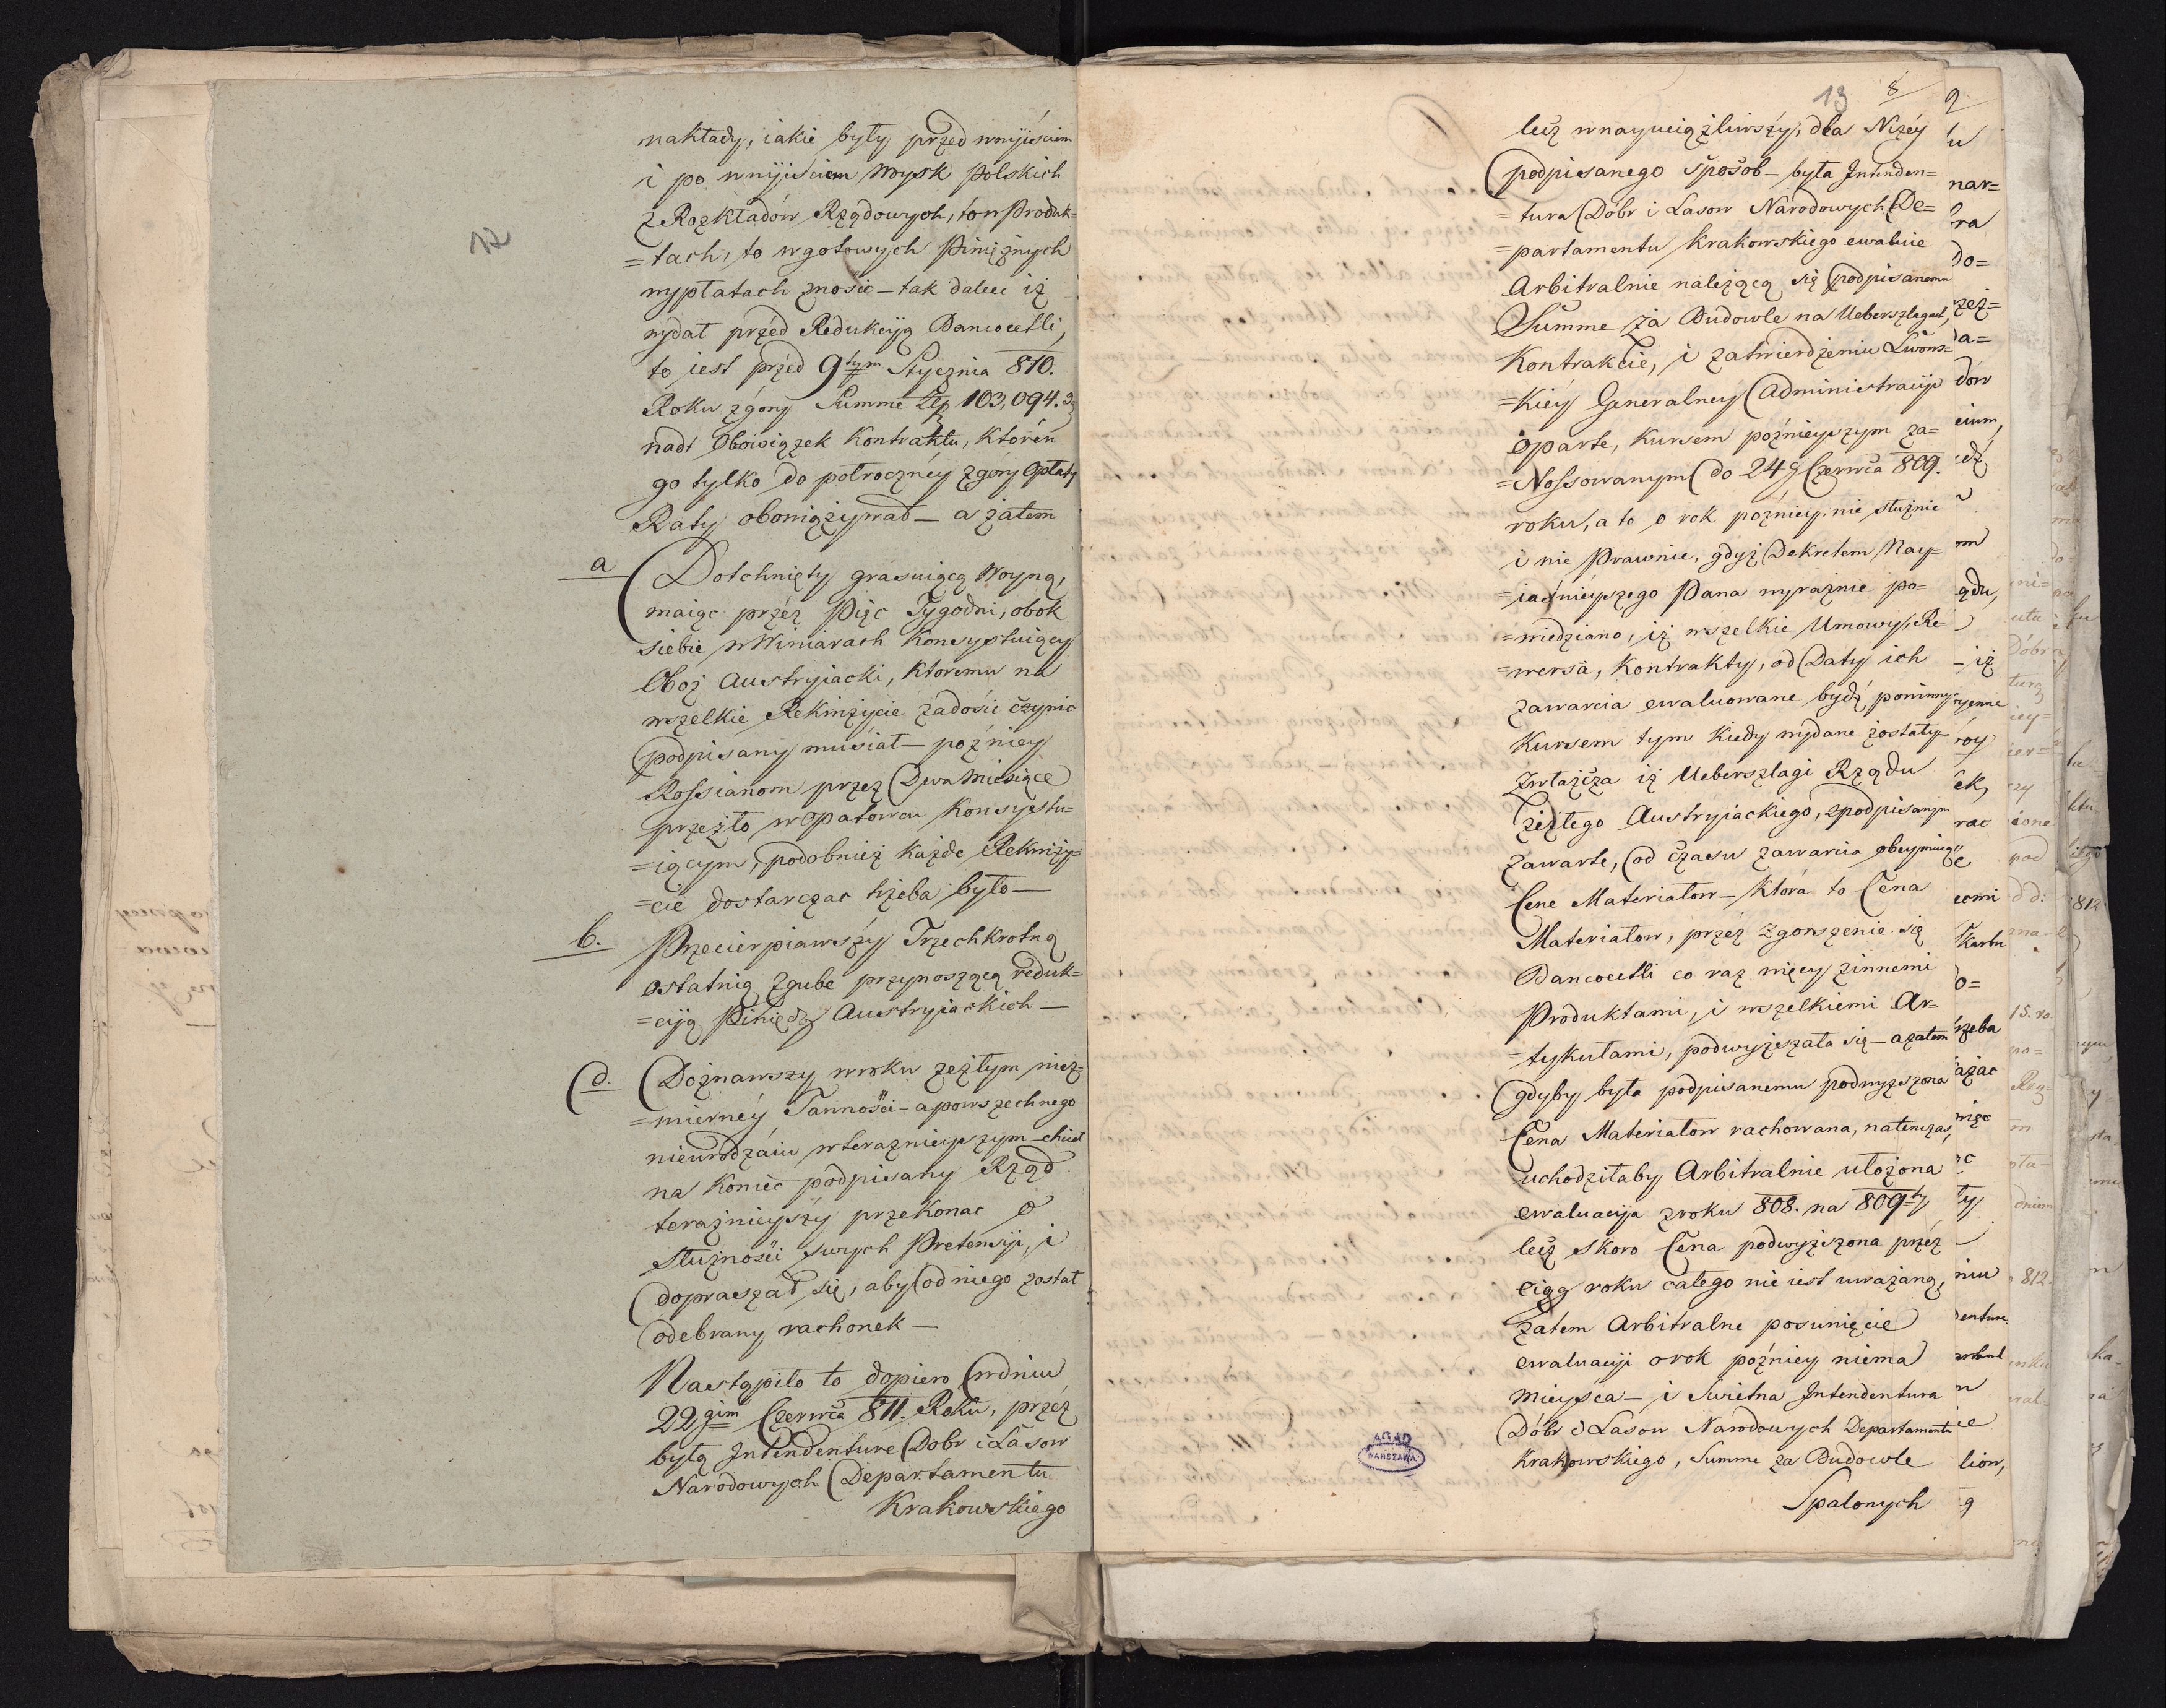 12
nakłady, iakie były przed wnyiściem
i po wnyiściem Woysk Polskich
z Rozkładów Rządowych, to w Produk=
=tach, to w gotowych Pinięznych
wypłatach znosić – tak daleci iż
wydał przed Redukcyją Bancocetli,
to iest przed 9tym Stycznia 810.
Roku z góry Summe Złp 103,094.
nadt Obowiązek Kontraktu, którén
go tylko do połrocznéy z góry Opłaty
Raty obowiązywał – a zatem
a Dotchnięty grasuiącą Woyną,
maiąc przéz Pięc Tygodni, obok
siebie w Winiarach Konsystuiący
Oboz Austryiacki, ktoremu na
wszelkie Rekwizycie zadośic czynic
podpisany musiał – pózniey
Rossianom przez Dwa Miesiące
przeżło w Opatowcu Konsystu=
=iącym, podobnież każde Rekwizy=
=cie dostarczac trzeba było –
b. Przecierpiawszy Trzechkrotną
ostatnią zgube przynoszącą reduk=
=cyją Pinięd Austryiackich –
d. Doznawszy w roku zezłym niez=
=mierney Tannośći – a powszechnego
nieurodzáiu w teraznieyszym – chciał
na koniec podpisany Rząd
teraznieyszy przekonac o
Słuznośći swych Pretensyi, i
dopraszał się, aby od niego został
odebrany rachonek –
Nastąpiło to dopiero w dniu
22gim Czerwca 811. Roku, przéz
byłą Intendenture Dobr i Lasow
Narodowych Departamentu
Krakowskiego
13 8
lecz w nayuciążliwszy, dla Nizéy
podpisanego sposob – była Intenden=
=tura Dóbr i Lasow Narodowych De=
=partamentu Krakowskiego ewalnie
Arbitralnie nalezącą się podpisanemu
Summe za Budowle na Ueberszlagach,
Kontrakcie, i zatwierdzeniu Lwows=
=kiéy Generalney Administracyi
oparte, Kursem poźnieyszym za=
=Nossowanym do 24 Czerwca 809.
roku, a to o rok pózniey, nie słuznie
i nie Prawnie, gdyż Dekretem Nay=
=iaśnieyszego Pana wyraźnie po=
=wiedziano, iż wszelkie Umowy, Re=
=wersa, Kontrakty, od Daty ich
zawarcia ewaluowane bydź powinny
Kursem tym kiedy wydane zostały
Zwłaszcza iż Ueberszlagi Rządu
zeszłego Austryiackiego, z podpisanym
zawarte, od czasu zawarcia obeymuią
Cene Materiałow – Która to Cena
Materiałow, przéz zgorszenie się
Bancocetli co raz więcy z innemi
Produktami, i wszelkiemi Ar=
=tykułami, podwyższała się – a zatem
gdyby była podpisanemu podwyższona
Cena Materiałow rachowana, natenczas,
uchodziłaby Arbitralnie ułożona
ewaluacyja z roku 808. na 809ty
lecz skoro Cena podwyższona przéz
ciąg roku całego nie iest uważaną,
zatem Arbitralne posunięcie
ewaluacyi o rok pózniey niema
mieysca – i Swietna Intendentura
Dóbr i Lasow Narodowych Departamentu
Krakowskiego, Summe za Budowle
Spalonych
AGAD
WARSZAWA